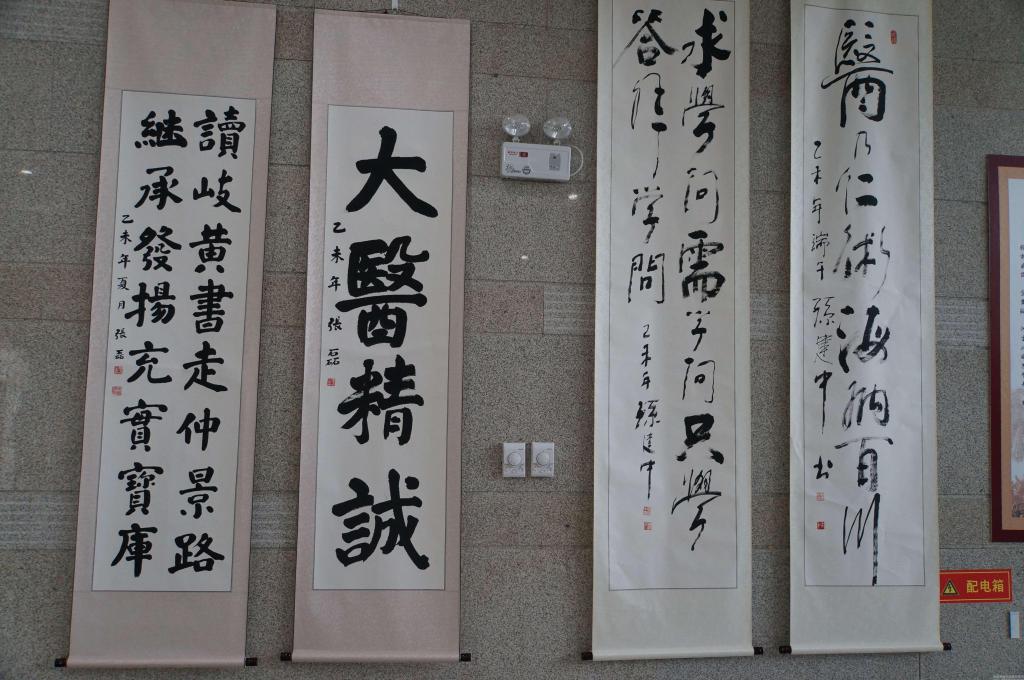 醫乃仁術海納百川
乙未年端午孫建中书
求學问需学问只學
答非学問
乙未年孫建中
大醫精誠
乙未年張磊
讀岐黄書走仲景路
继承發揚充實寶庫
乙未年夏月張磊
配电箱